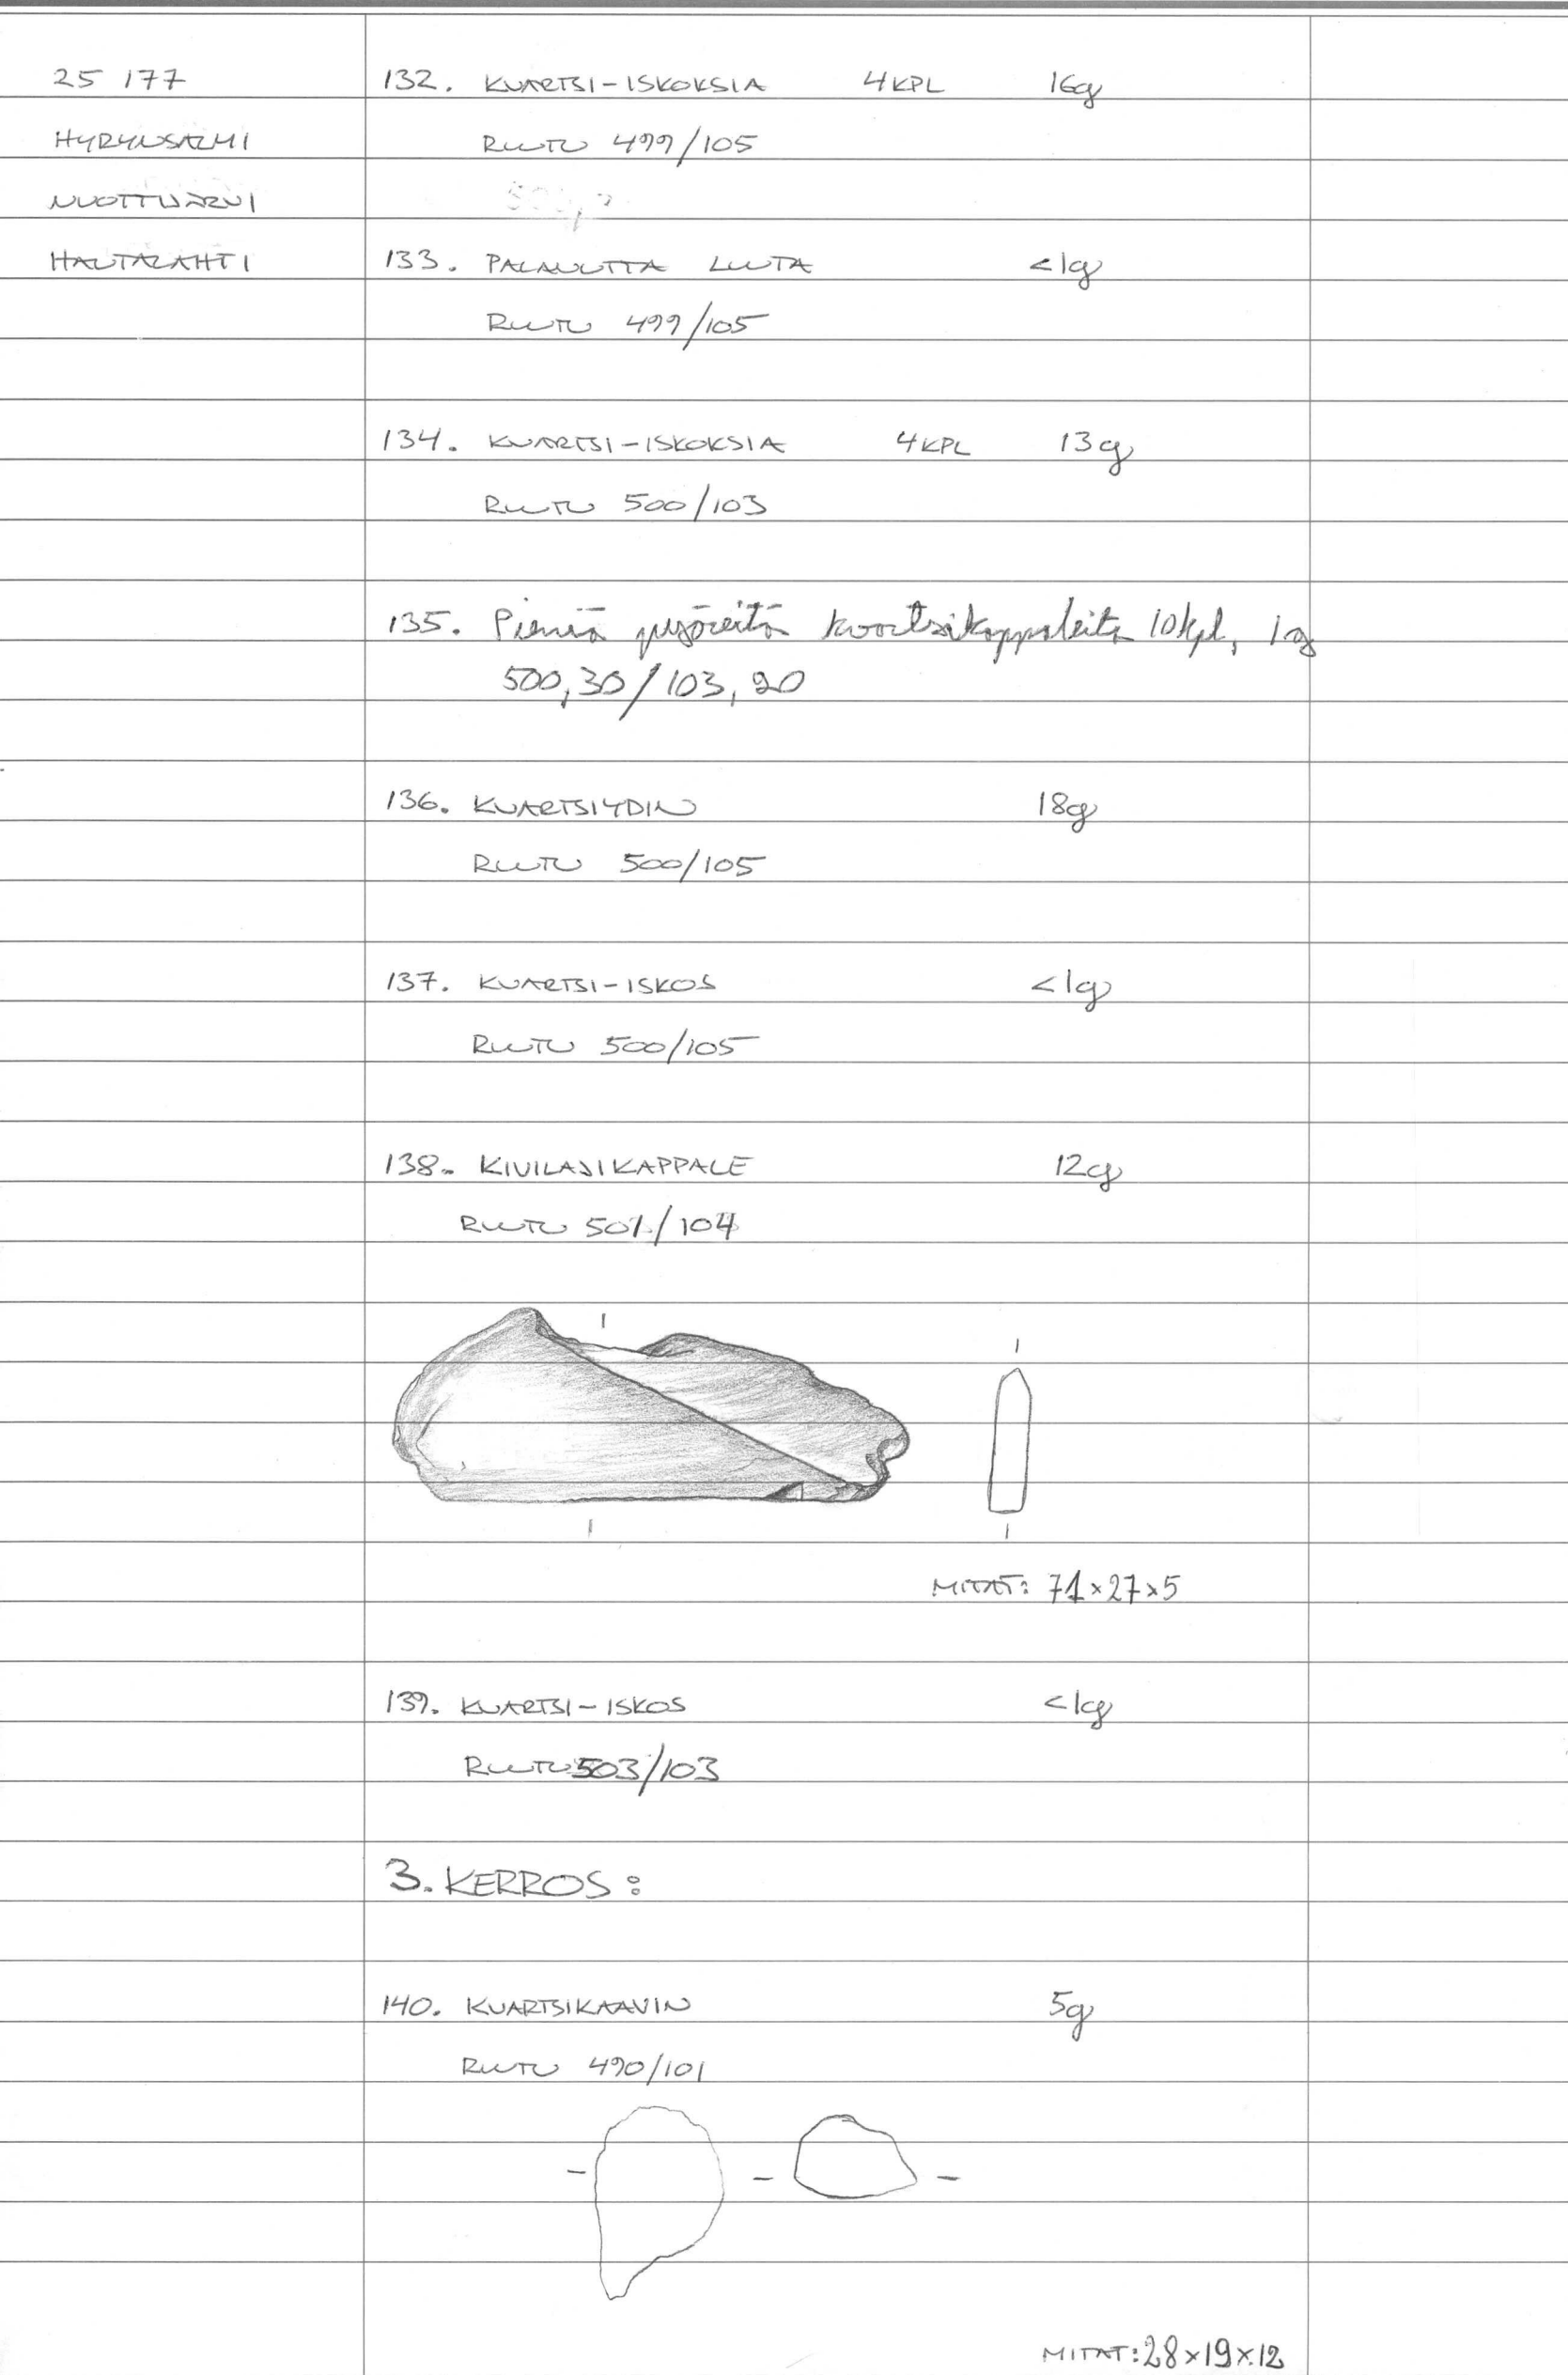 25 177
HYRYNSALMI
NUOTTIJÄRVI
HAUTALAHTI
132. KVARTSI-ISKOKSIA 4 KPL 16g
RUUTU 499/105
133. PALANUTTA LUUTA <1g
RUUTU 499/105
134. KVARTSI-ISKOKSIA 4 KPL 13g
RUUTU 500/103
135. Pieniä pyöreitä kvartsikappaleita 10 kpl, 1g
500,30/103,90
136. KVARTSIYDIN 18g
RUUTU 500/105
137. KVARTSI-ISKOS <1g
RUUTU 500/105
138. KIVILAJIKAPPALE 12g
RUUTU 501/104
MITAT: 71×27×5
139. KVARTSI-ISKOS <1g
RUUTU 503/103
3. KERROS:
140. KVARTSIKAAVIN 5g
RUUTU 490/101
MITAT: 28×19×12